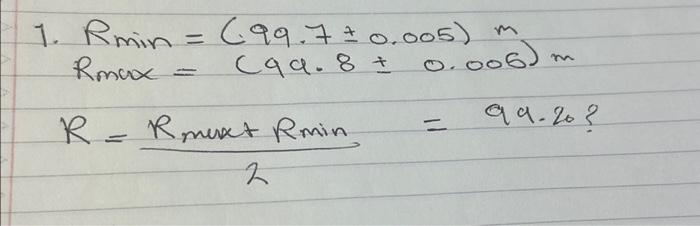 1. Rmin = (99.7 ± 0.005) m
Rmax = (99.8 ± 0.006) m
R = Rmax + Rmin / 2 = 99.20?